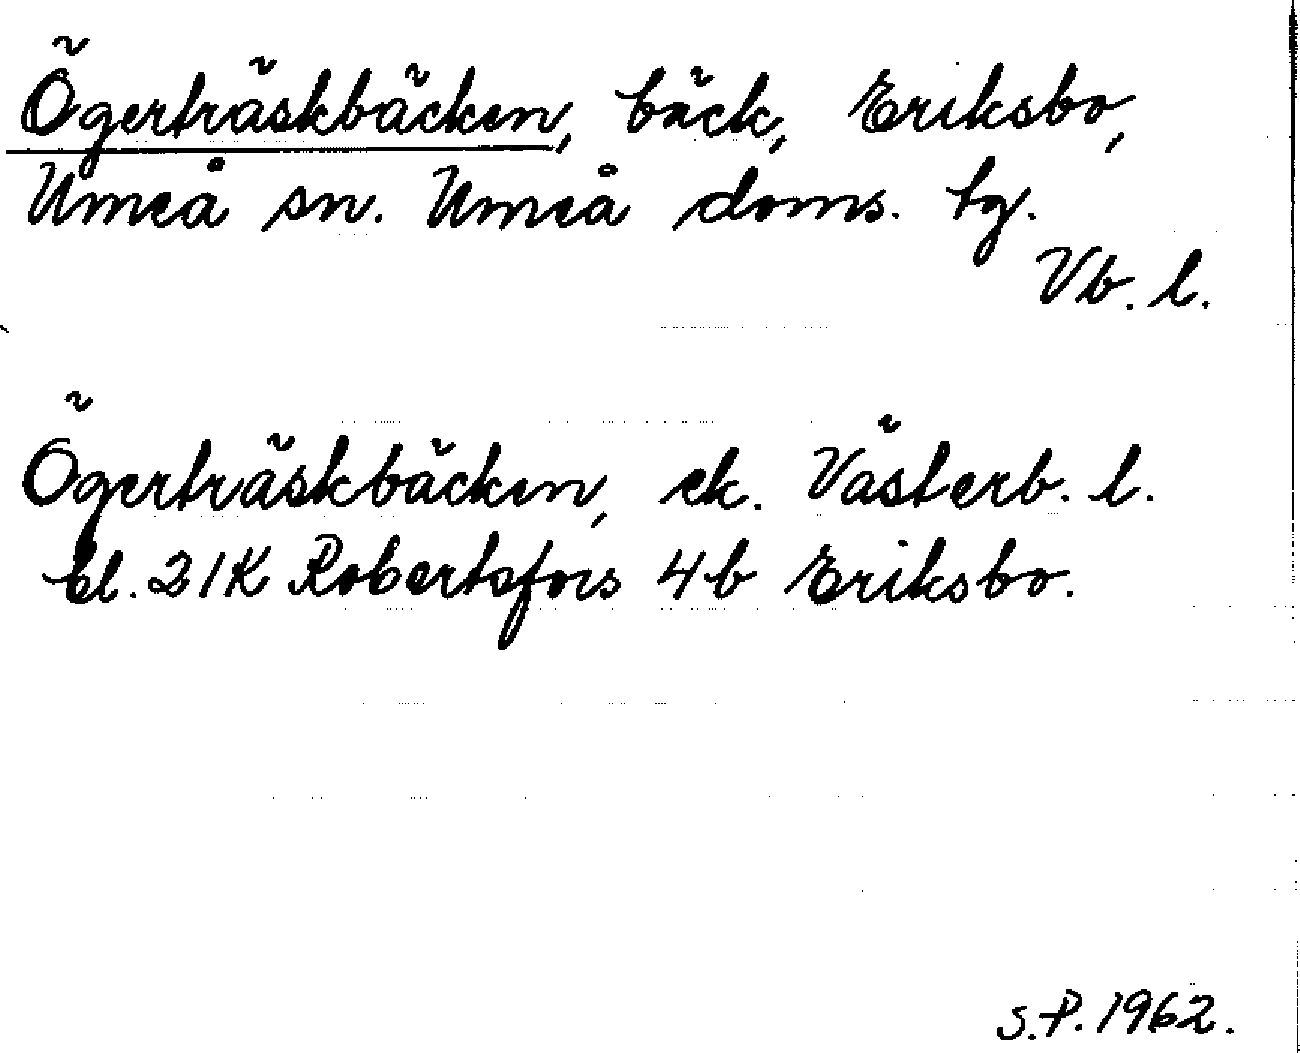 Ögerträskbäcken, bäck, Eriksbo,
Umeå sn. Umeå doms. tg.
Vb. l.
Ögerträskbäcken, ek. Västerb. l.
bl. 21K Robertsfors 4b Eriksbo.
S.P. 1962.